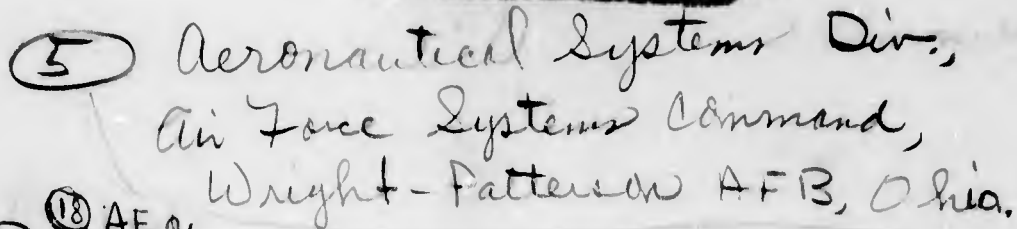 5 Aeronautical Systems Div.,
Air Force Systems Command,
Wright-Patterson AFB, Ohio.
18